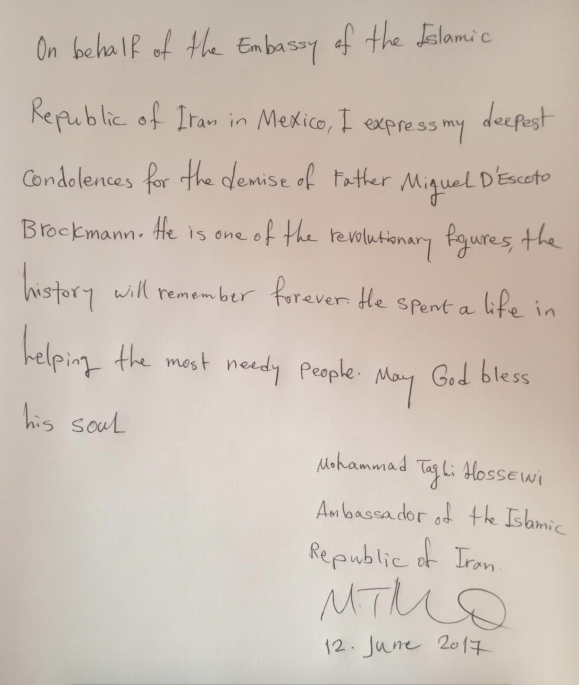 On behalf of the Embassy of the Islamic
Republic of Iran in Mexico, I express my deepest
condolences for the demise of Father Miguel D'Escoto
Brockmann. He is one of the revolutionary figures, the
history will remember forever. He spent a life in
helping the most needy people. May God bless
his soul
Mohammad Taghi Hossewi
Ambassador of the Islamic
Republic of Iran.
12. June 2017